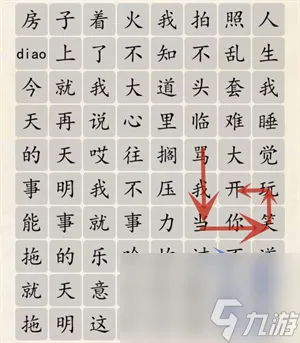 房子着火我拍照人
diao上了不知不乱生
今就我大道头套我
天再说心里临难睡
的天哎往搁骂大觉
事明我不压我开玩
能事就事力当你笑
拖的乐
就天意
拖明这
九游